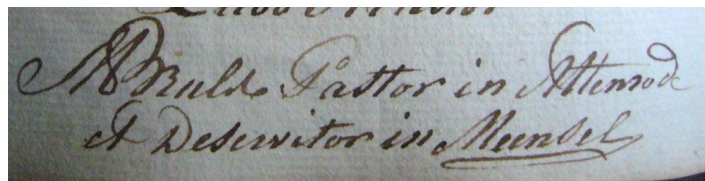 Pastor in Attenrode
et Deservitor in Meensel